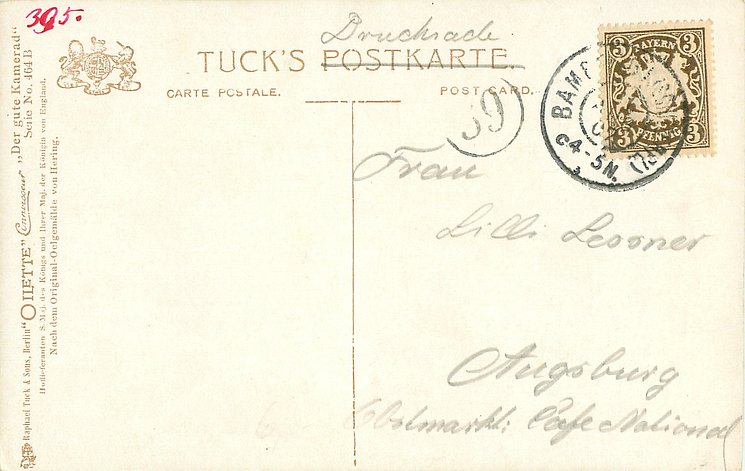 395.
Drucksache
TUCK'S POSTKARTE.
CARTE POSTALE.
POST CARD.
39
3 BAYERN 3
3 PFENNIG 3
BAMB
4-5N.
Frau
Lilli Lessner
Augsburg
Obstmarkt: Cafe National
Raphael Tuck & Sons, Berlin "OILETTE" Connoisseur „Der gute Kamerad"
Serie No. 464 B
Hoflieferanten S. Maj. des Königs und Ihrer Maj. der Königin von England.
Nach dem Original-Oelgemälde von Hering.